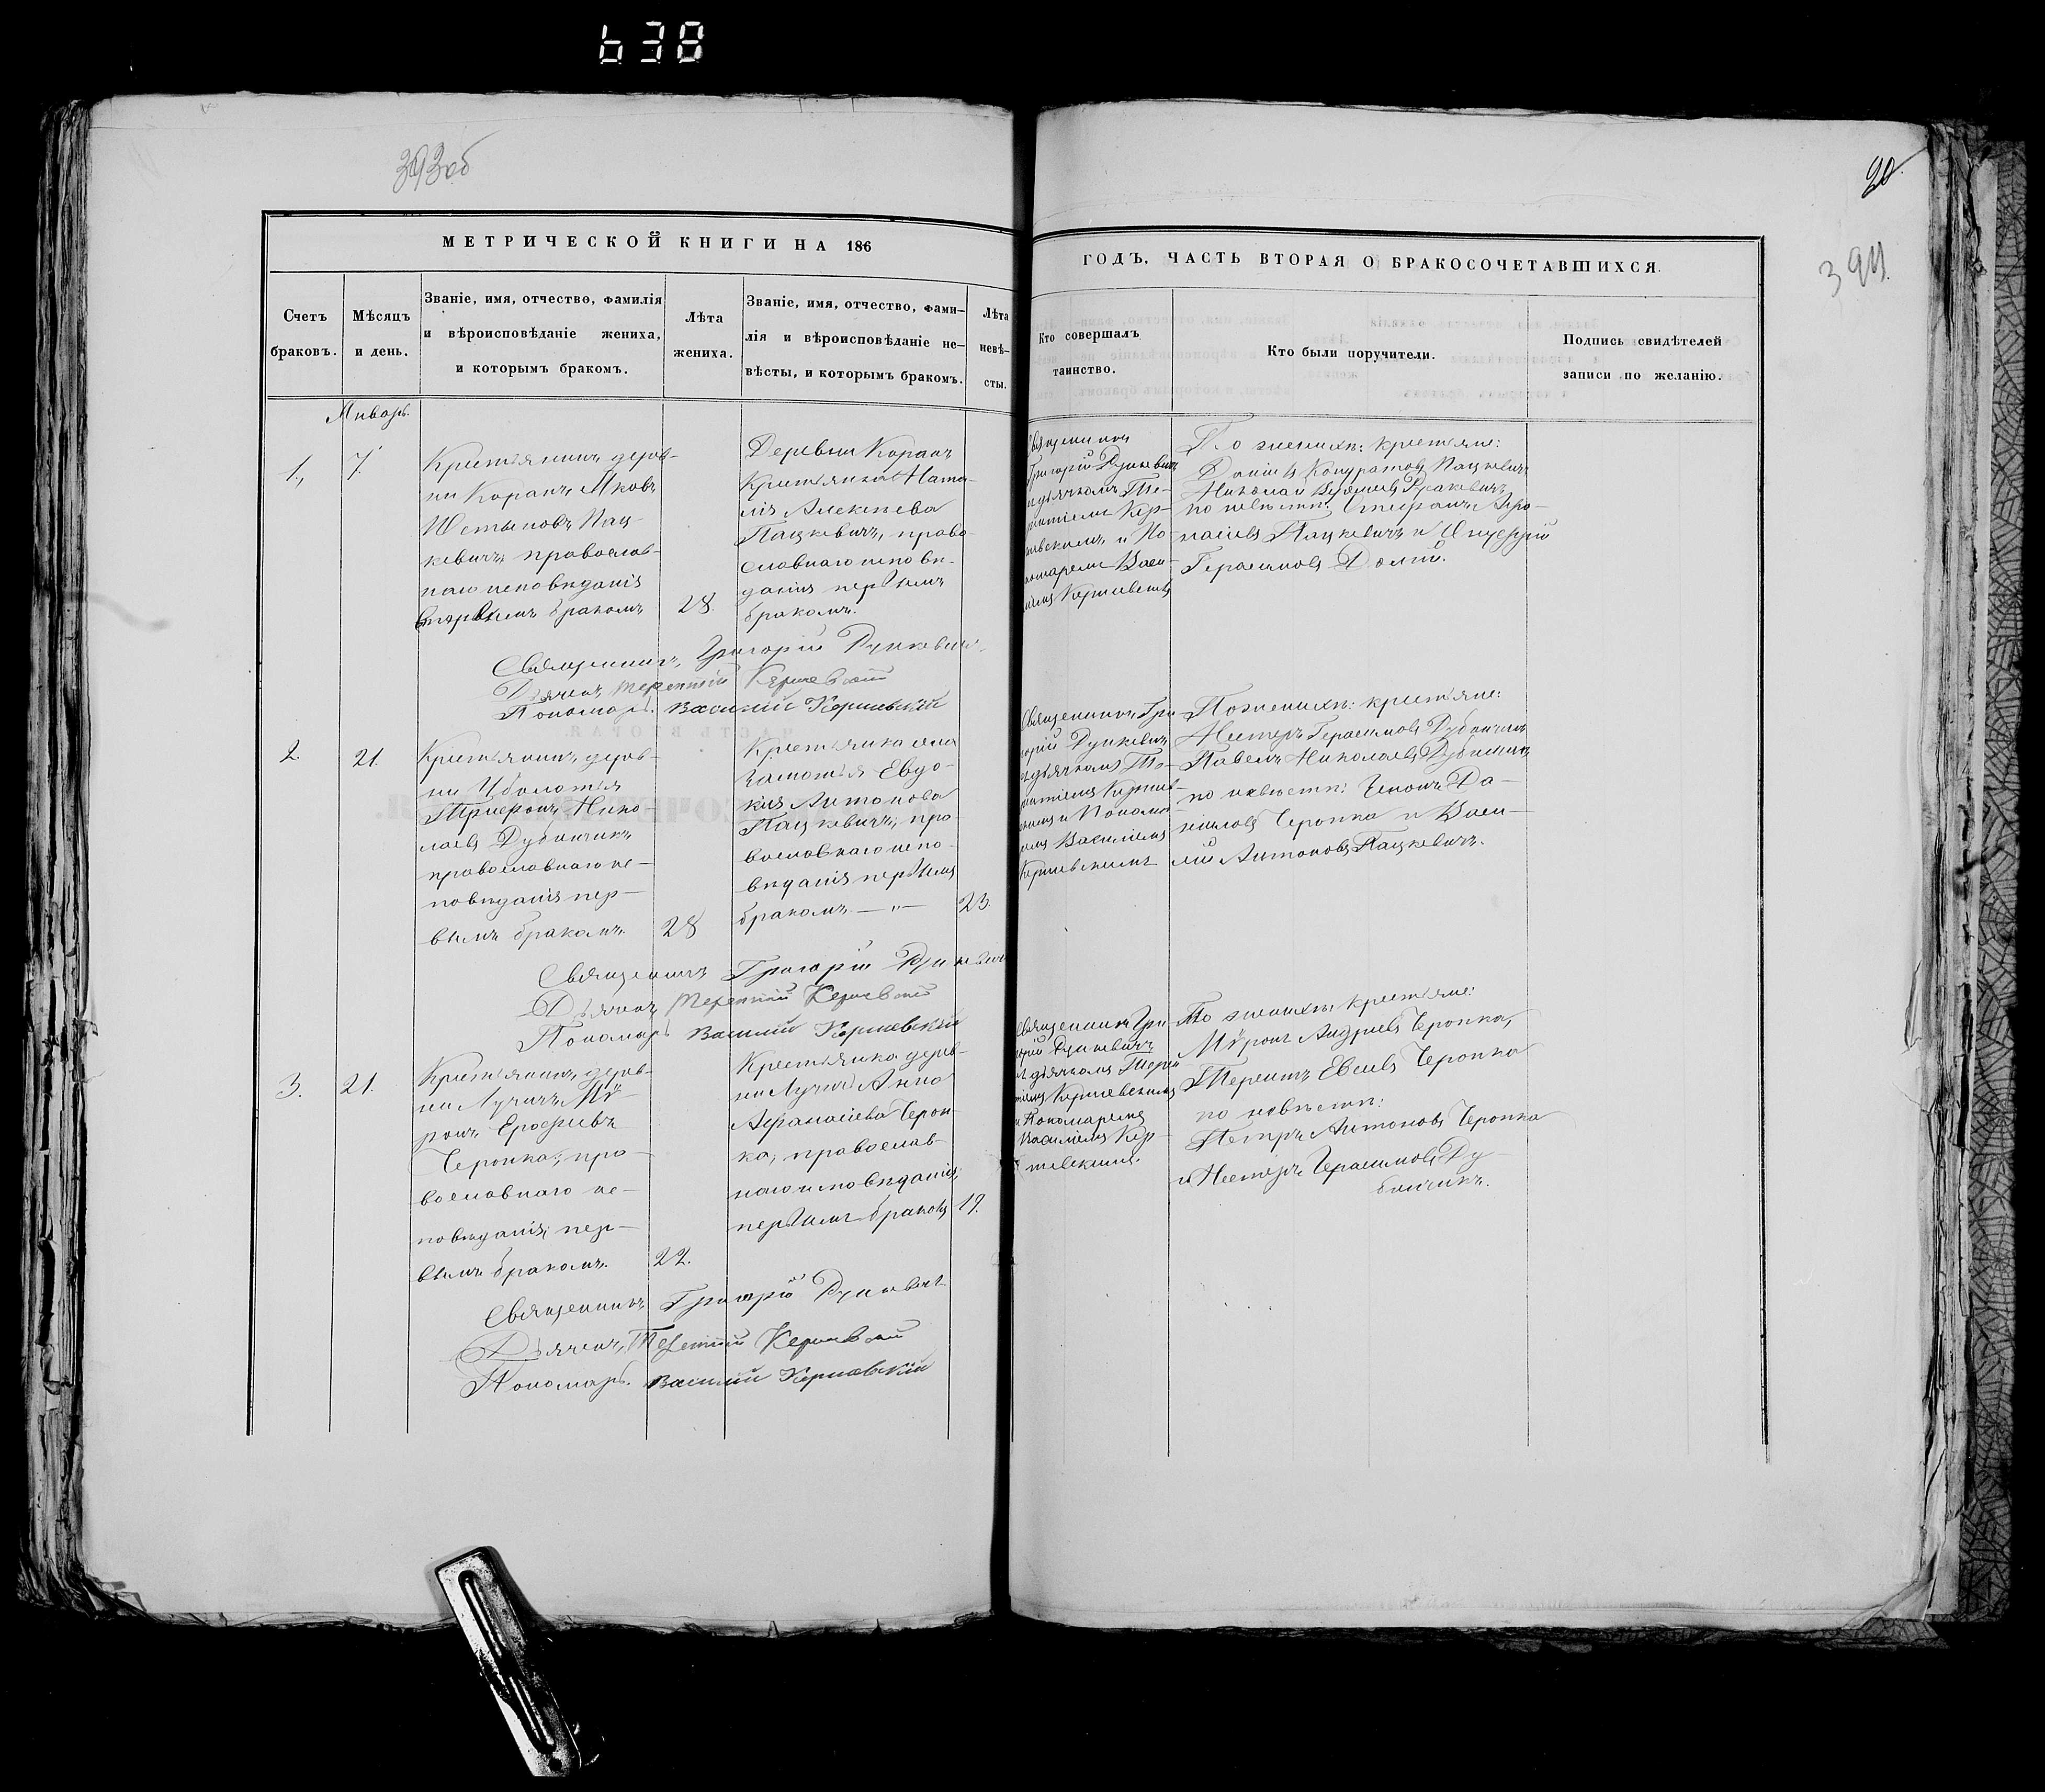 638
393об
20.
394.
МЕТРИЧЕСКОЙ КНИГИ НА 186
ГОДЪ, ЧАСТЬ ВТОРАЯ О БРАКОСОЧЕТАВШИХСЯ.
Счетъ
браковъ.
Мѣсяцъ
и день.
Званіе, имя, отчество, фамилія
и вѣроисповѣданіе жениха,
и которымъ бракомъ.
Лѣта
жениха.
Званіе, имя, отчество, фами-
лія и вѣроисповѣданіе не-
вѣсты, и которымъ бракомъ.
Лѣта
невѣ-
сты.
Кто совершалъ
таинство.
Кто были поручители.
Подпись свидѣтелей
записи по желанію.
Январь.
1.
7.
Крестьянинъ дерев-
ни Коранъ Яковъ
Пац-
кевичъ, православ-
наго исповѣданія
бракомъ
28.
Деревни Коранъ
Крестьянка Ната-
лія Алексѣева
Пацкевичъ, право-
славнаго исповѣ-
данія первымъ
бракомъ.
Священникъ
Григорій Рункевичъ
съ дьячкомъ Те-
рентіемъ Кер-
и По-
номаремъ Васи-
По женихѣ: крестьяне:
Даніилъ Кондратовъ Пацкевичъ
Николай
по невѣстѣ: Стефанъ Афо-
насіевъ Пацкевичъ и Онуфрій
Герасимовъ
Священникъ Григорій Рункевичъ
Дьячекъ Терентій
Пономарь Василій
2.
21.
Крестьянинъ дерев-
ни Уболотья
Трифонъ Нико-
лаевъ Дубанчикъ
православнаго ис-
повѣданія пер-
вымъ бракомъ.
28
Крестьянка села
Евдо-
кія Антонова
Пацкевичъ, пра-
вославнаго испо-
вѣданія первымъ
бракомъ — „ —
23.
Священникъ Гри-
горій Рункевичъ
съ дьячкомъ Те-
рентіемъ
и Понома-
ремъ Василіемъ
По женихѣ: крестьяне:
Несторъ Герасимовъ Дубанчикъ
Павелъ Николаевъ Дубанчикъ
по невѣстѣ: Да-
ніиловъ Черопка и Васи-
лій Антоновъ Пацкевичъ.
Священникъ Григорій Рункевичъ
Дьячекъ Терентій
Пономарь Василій
3.
21.
Крестьянинъ дерев-
ни Лучицъ Мѵ-
ронъ Ерофѣевъ
Черопка, пра-
вославнаго ис-
повѣданія, пер-
вымъ бракомъ.
22.
Крестьянка дерев-
ни Анна
Афанасіева Череп-
ка, православ-
наго исповѣданія,
первымъ бракомъ
19.
Священникъ Гри-
горій Рункевичъ
съ дьячкомъ Терен-
тіемъ
и Пономаремъ
Василіемъ
По женихѣ: крестьяне:
Мѵронъ Андреевъ Черопка,
Терентъ Евсеевъ Черопка
по невѣстѣ:
Петръ Антоновъ Черопка
и Несторъ Герасимовъ Ду-
банчикъ.
Священникъ Григорій Рункевичъ
Дьячекъ Терентій
Пономарь Василій